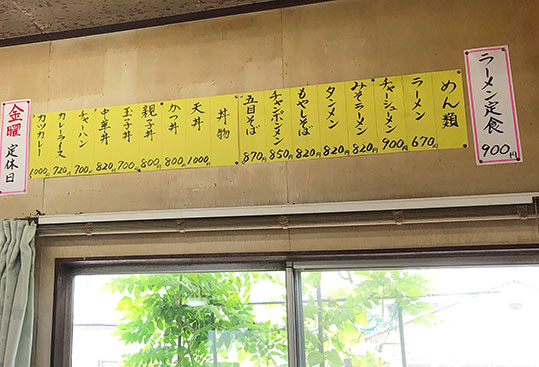 ラーメン定食
900円
めん類
ラーメン 670円
チャーシューメン 900円
みそラーメン 820円
タンメン 820円
もやしそば 820円
チャンポンメン 850円
五目そば 870円
丼物
天丼 1000円
かつ丼 800円
親子丼 800円
玉子丼 700円
中華丼 820円
チャーハン 700円
カレーライス 720円
カツカレー 1000円
金曜定休日